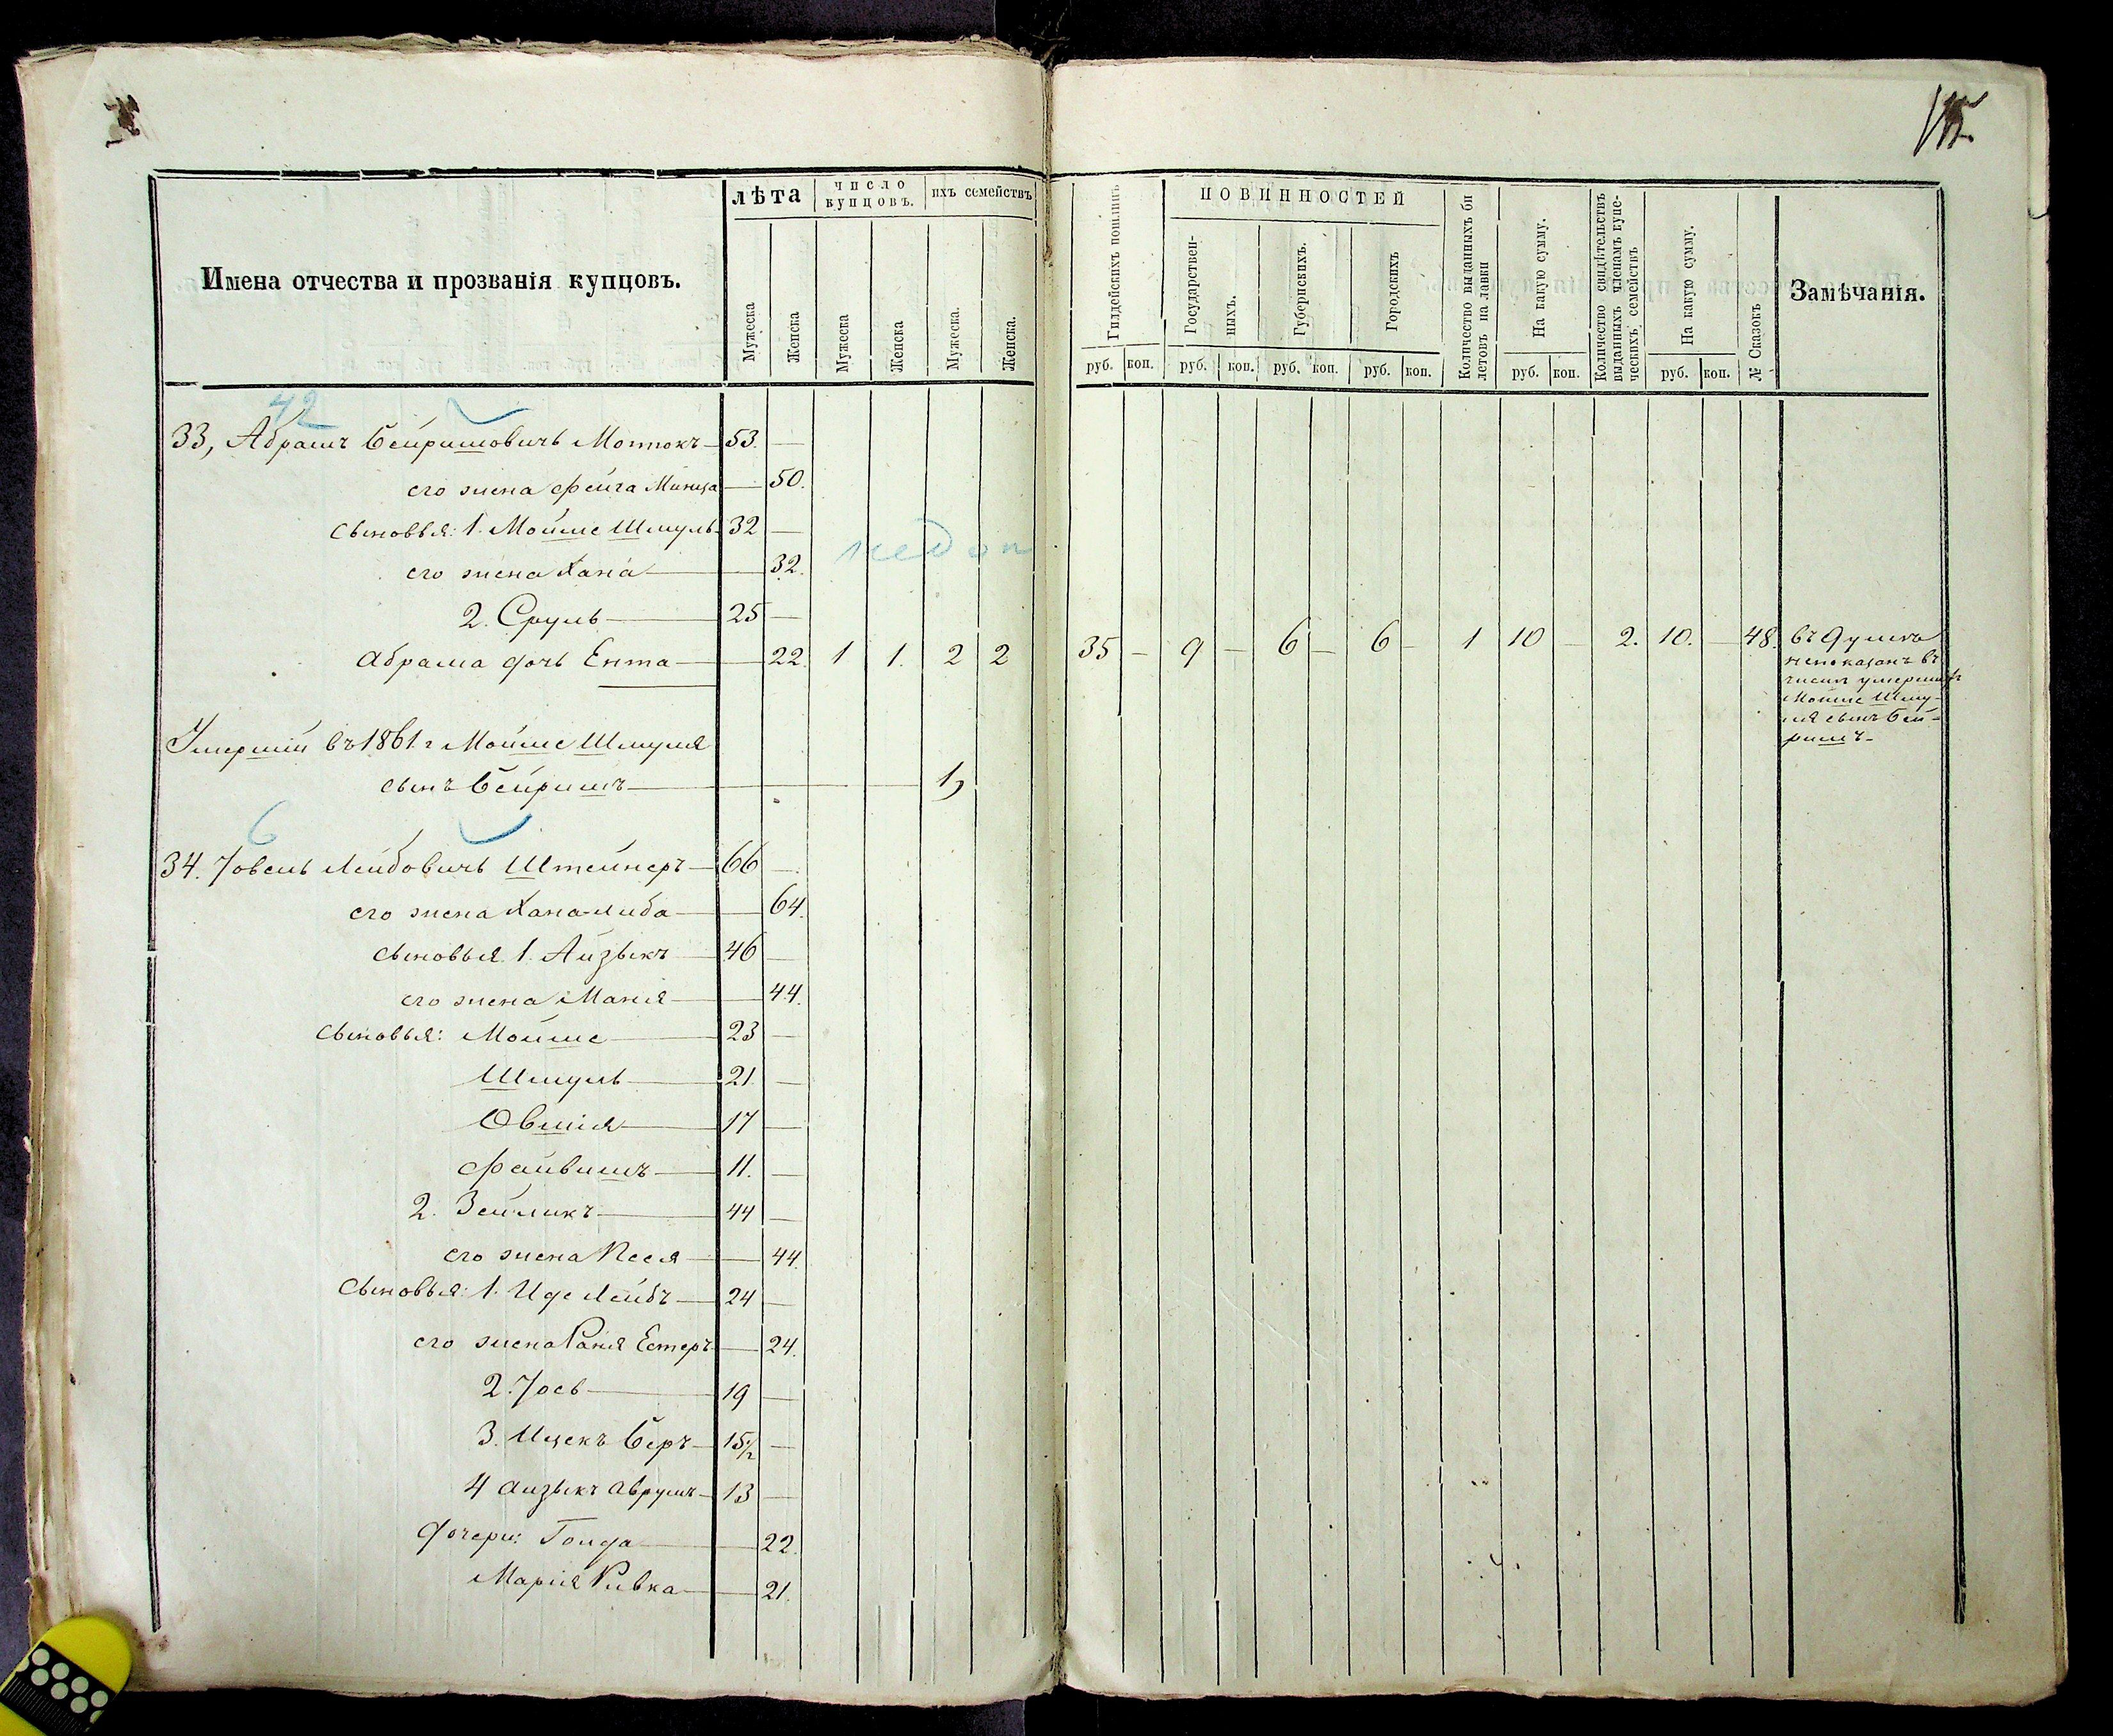 Имена отчества и прозванія купцовъ.
лѣта
Мужеска
Женска
число купцовъ.
Мужеска
Женска
ихъ семействъ
Мужеска.
Женска.
Гилдейскихъ пошлинъ
руб. коп.
ПОВИННОСТЕЙ
Государствен-
ныхъ.
руб. коп.
Губернскихъ.
руб. коп.
Городскихъ
руб. коп.
Количество выданныхъ би
летовъ на лавки
На какую сумму.
руб. коп.
Количество свидѣтельствъ
выданныхъ членамъ купе-
ческихъ семействъ
На какую сумму.
руб. коп.
№ Сказокъ
Замѣчанія.
42
33, Абрамъ Бейришовичъ Моттокъ 53. —
его жена Фейга Минца — 50.
сыновья: 1. Мойше Шмуль 32 —
его жена Хана — 32.
2. Сруль 25 —
Абрама дочь Ента — 22. 1 1. 2 2 35 — 9 — 6 — 6 — 1 10 — 2. 10. — 48. въ Думѣ
непоказанъ въ
числѣ умершихъ
Мойше Шму-
ля сынъ Бей-
ришъ
недоп
Умершій въ 1861 г Мойше Шмуля
сынъ Бейришъ — 1,
6
34. Іовель Лейбовичъ Штейнеръ 66 —
его жена Хана-либа — 64.
сыновья 1. Айзыкъ 46 —
его жена Маня — 44.
сыновья: Мойше 23 —
Шмуль 21. —
Овшія 17 —
Файвишъ 11. —
2. Зейликъ 44 —
его жена Песя — 44.
сыновья: 1. Иде Лейбъ 24 —
его жена Раня Естеръ — 24.
2. Іось 19 —
3. Ицекъ Беръ 15½ —
4 Айзыкъ Аврумъ 13 —
дочери: Голда — 22.
Марія Ривка — 21.